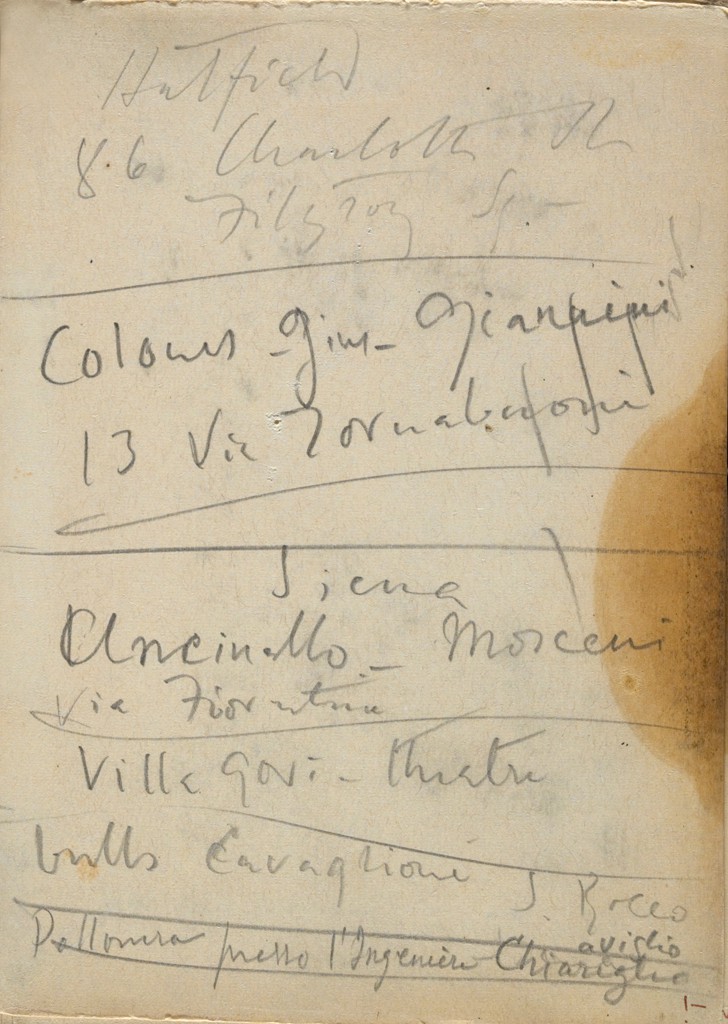 Hatfield
86 Charlotte St
Fitzroy Sq -
Colours - Gius - Giannini
13 Via Tornabuoni
Siena
- Mosceni
Via Fiorentina
Villa Gori - theatre
bulbs Cavaglione S. Rocco
presso l'Ingeniere Chiariglio
aviglio
1-